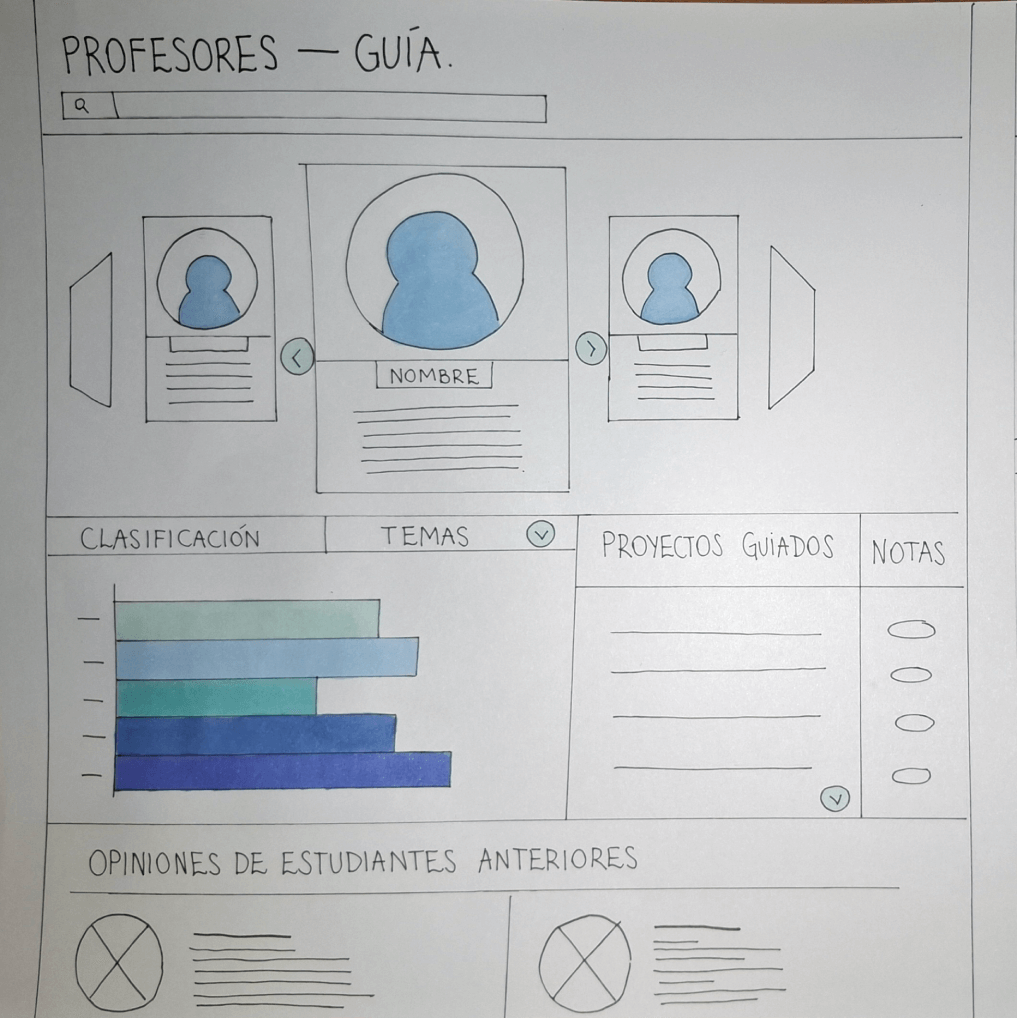 PROFESORES — GUÍA.
NOMBRE
CLASIFICACIÓN
TEMAS
PROYECTOS GUIADOS
NOTAS
OPINIONES DE ESTUDIANTES ANTERIORES